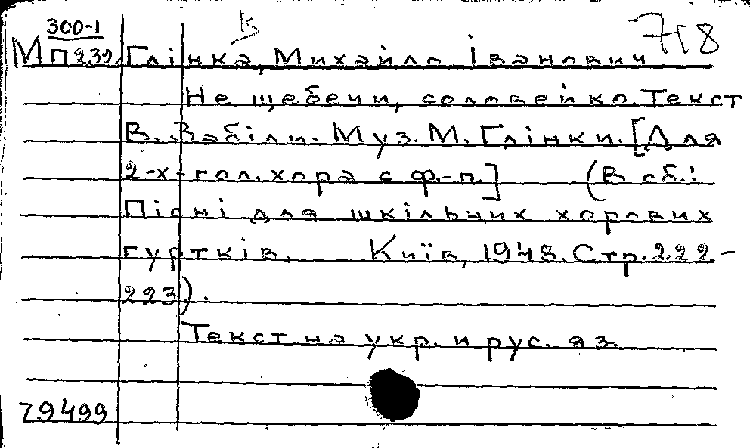 300-1
718
М П232. Глінка, Михайло Іванович
Не щебечи, соловейко. Текст
В. Забіли. Муз. М. Глінки. [Для
2-х-гол. хора с ф.-п.] (В сб.:
Пісні для шкільних хорових
гуртків. Київ, 1948. Стр. 222-
223).
Текст на укр. и рус. яз.
79499